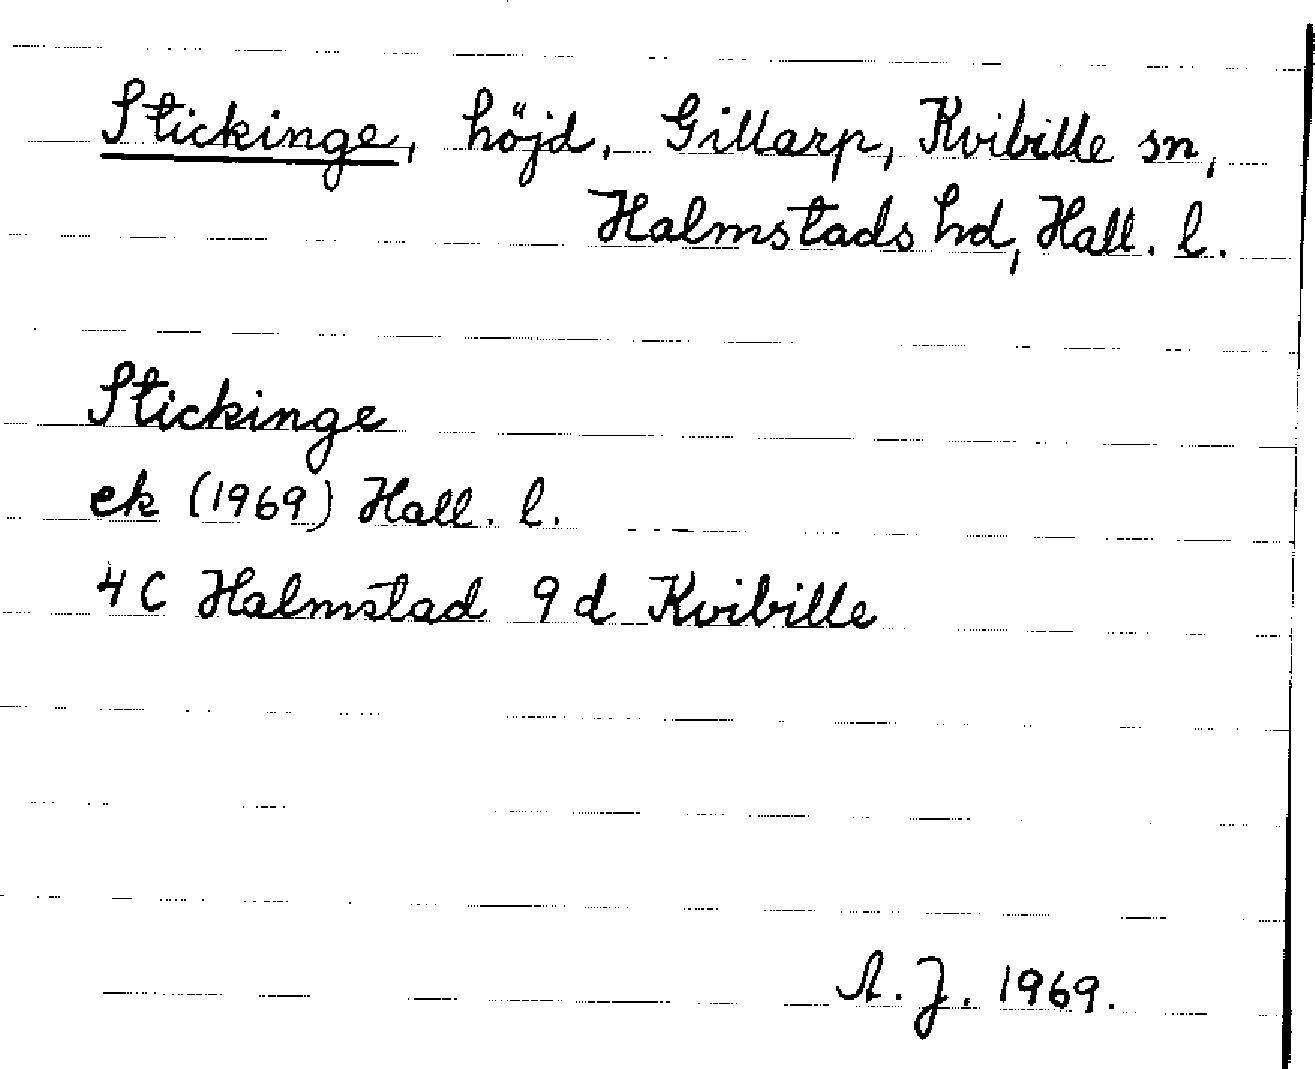 Stickinge, höjd, Gillarp, Kvibille sn,
Halmstads hd, Hall. l.
Stickinge
ek (1969) Hall. l.
4 C Halmstad 9 d Kvibille
A. J. 1969.